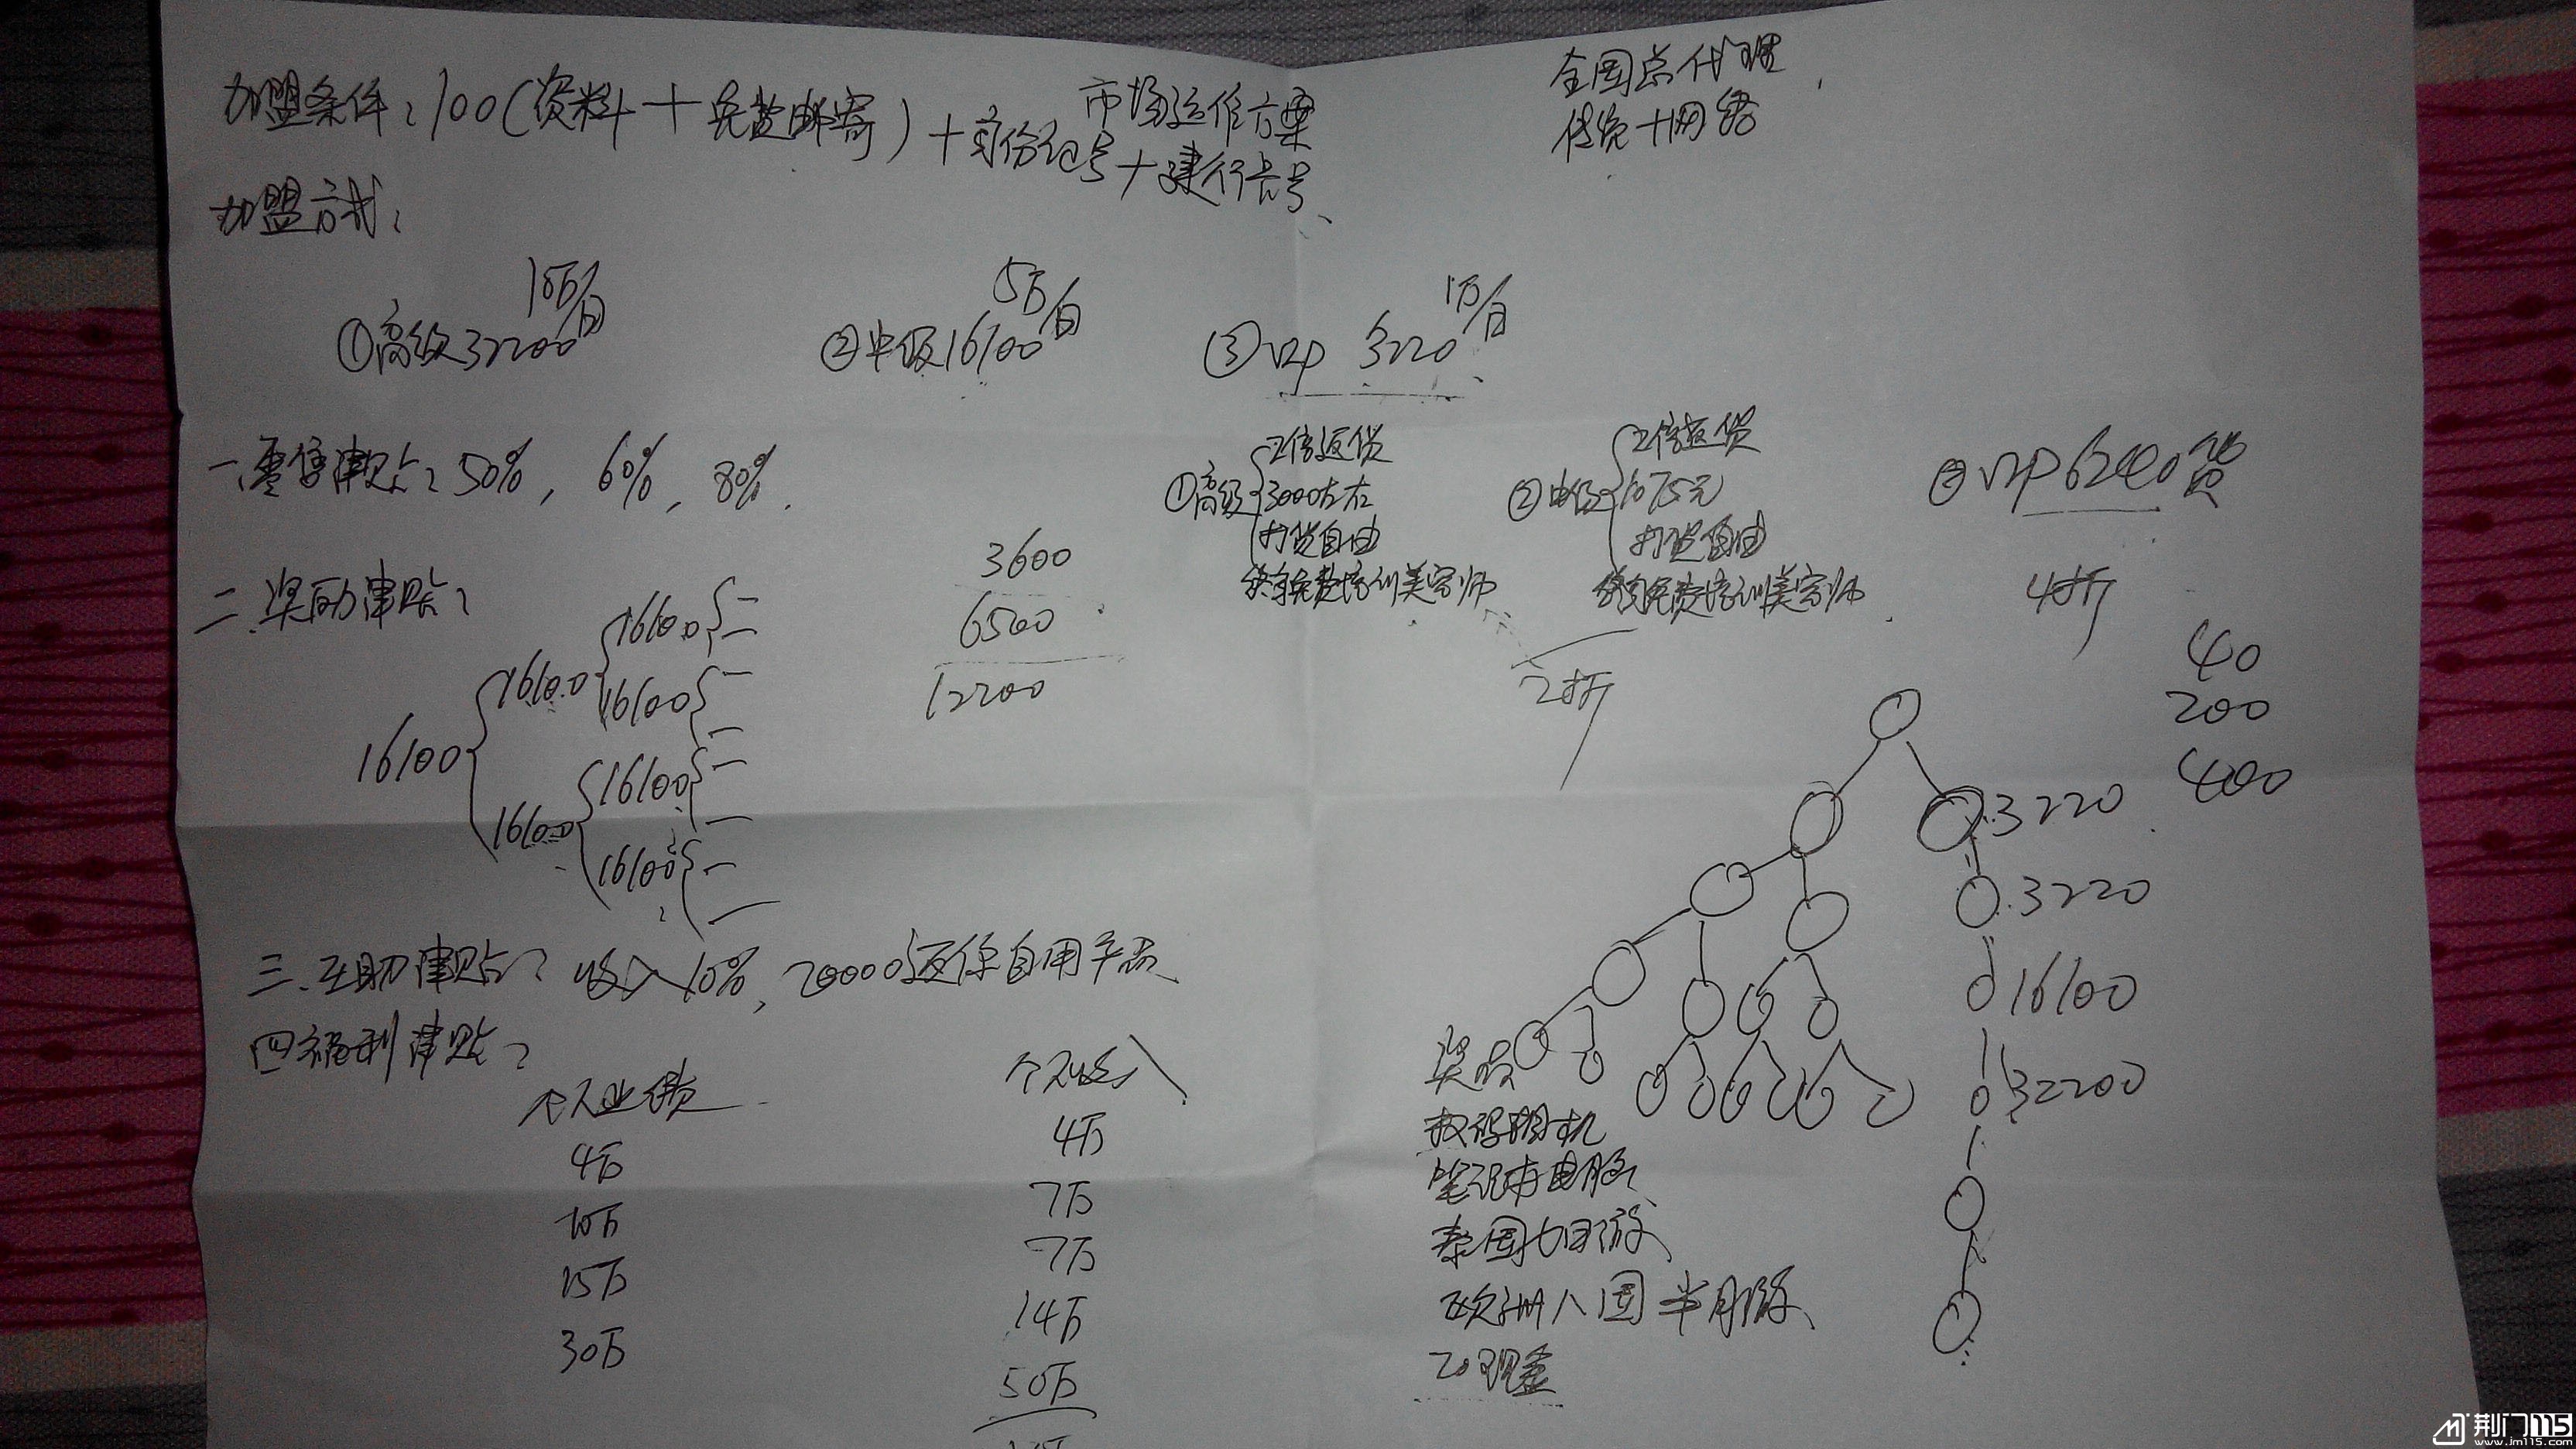 市场运作方案
全国总代理
传览十网络
加盟条件:100(资料+免费邮寄)+身份证号+建行卡号、
加盟方式:
10万/日 5万/日 1万/日
①高级32200 ②中级16100 ③VIP 3220
一.零售津贴:50%,60%,80%.
①高级 2倍返货
3000左右
打货自由
终身免费培训美容师
②中级 2倍返货
1075元
打货自由
终身免费培训美容师
2折
③VIP6240货
4折
二.奖励津贴:
16100
16100
16100
16100
16100
16100
16100
3600
6500
12200
40
200
400
3220
3220
16100
32200
三.互助津贴:收入10%,20000返你自用产品
四福利津贴:
个人业绩 个人收入
4万 4万
10万 7万
15万 7万
30万 14万
50万
奖励
数码相机
笔记本电脑、
泰国七日游、
欧洲八国半月游、
荆门115
www.jm115.com